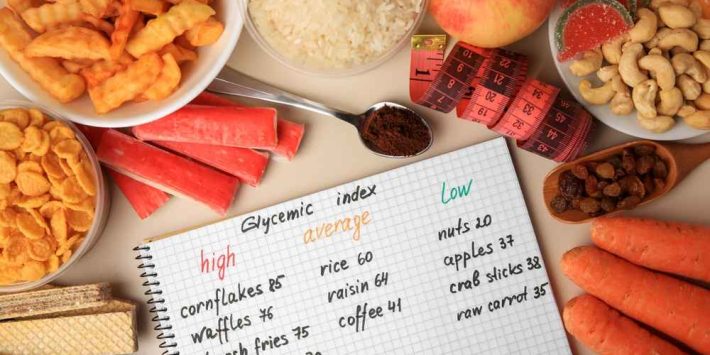 Glycemic index
high
cornflakes 85
waffles 76
fries 75
average
rice 60
raisin 64
coffee 41
Low
nuts 20
apples 37
crab sticks 38
raw carrot 35